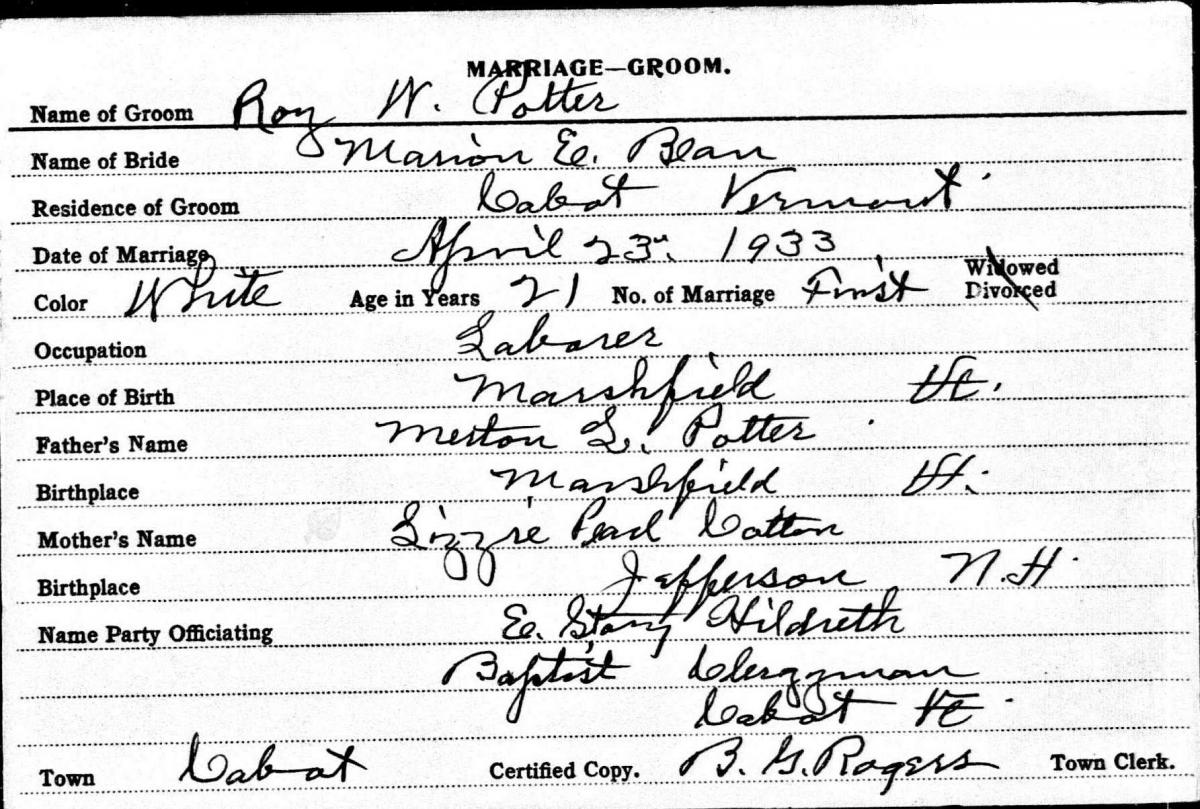 MARRIAGE—GROOM.
Name of Groom Roy W. Potter
Name of Bride Marion E. Bean
Residence of Groom Cabot Vermont
Date of Marriage April 23rd. 1933
Color White Age in Years 21 No. of Marriage First Widowed Divorced
Occupation Laborer
Place of Birth Marshfield Vt.
Father's Name Merton L. Potter
Birthplace Marshfield Vt.
Mother's Name Lizzie Pearl Cotton
Birthplace Jefferson N.H.
Name Party Officiating E. Story Hildreth
Baptist Clergyman
Cabot Vt
Town Cabot Certified Copy. B. G. Rogers Town Clerk.